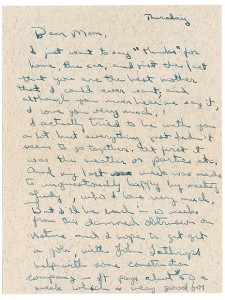 Thursday
Dear Mom,
I just want to say "thanks" for
home, the car, and just the fact
that you are the best mother
that I could ever want, and
although you never hear me say it,
I love you very much.
I actually tried to be with you
a lot but everything just didn't
seem to go together. At first it
was the weather or parties etc.
And my last week was made
so unquestionably happy by meeting
Judy, who I love very much.
But I'll be back — 10 weeks
from the
nature and I hope to get
a job, with John
with some construction
company — It pays about 50 a
week which is very good for